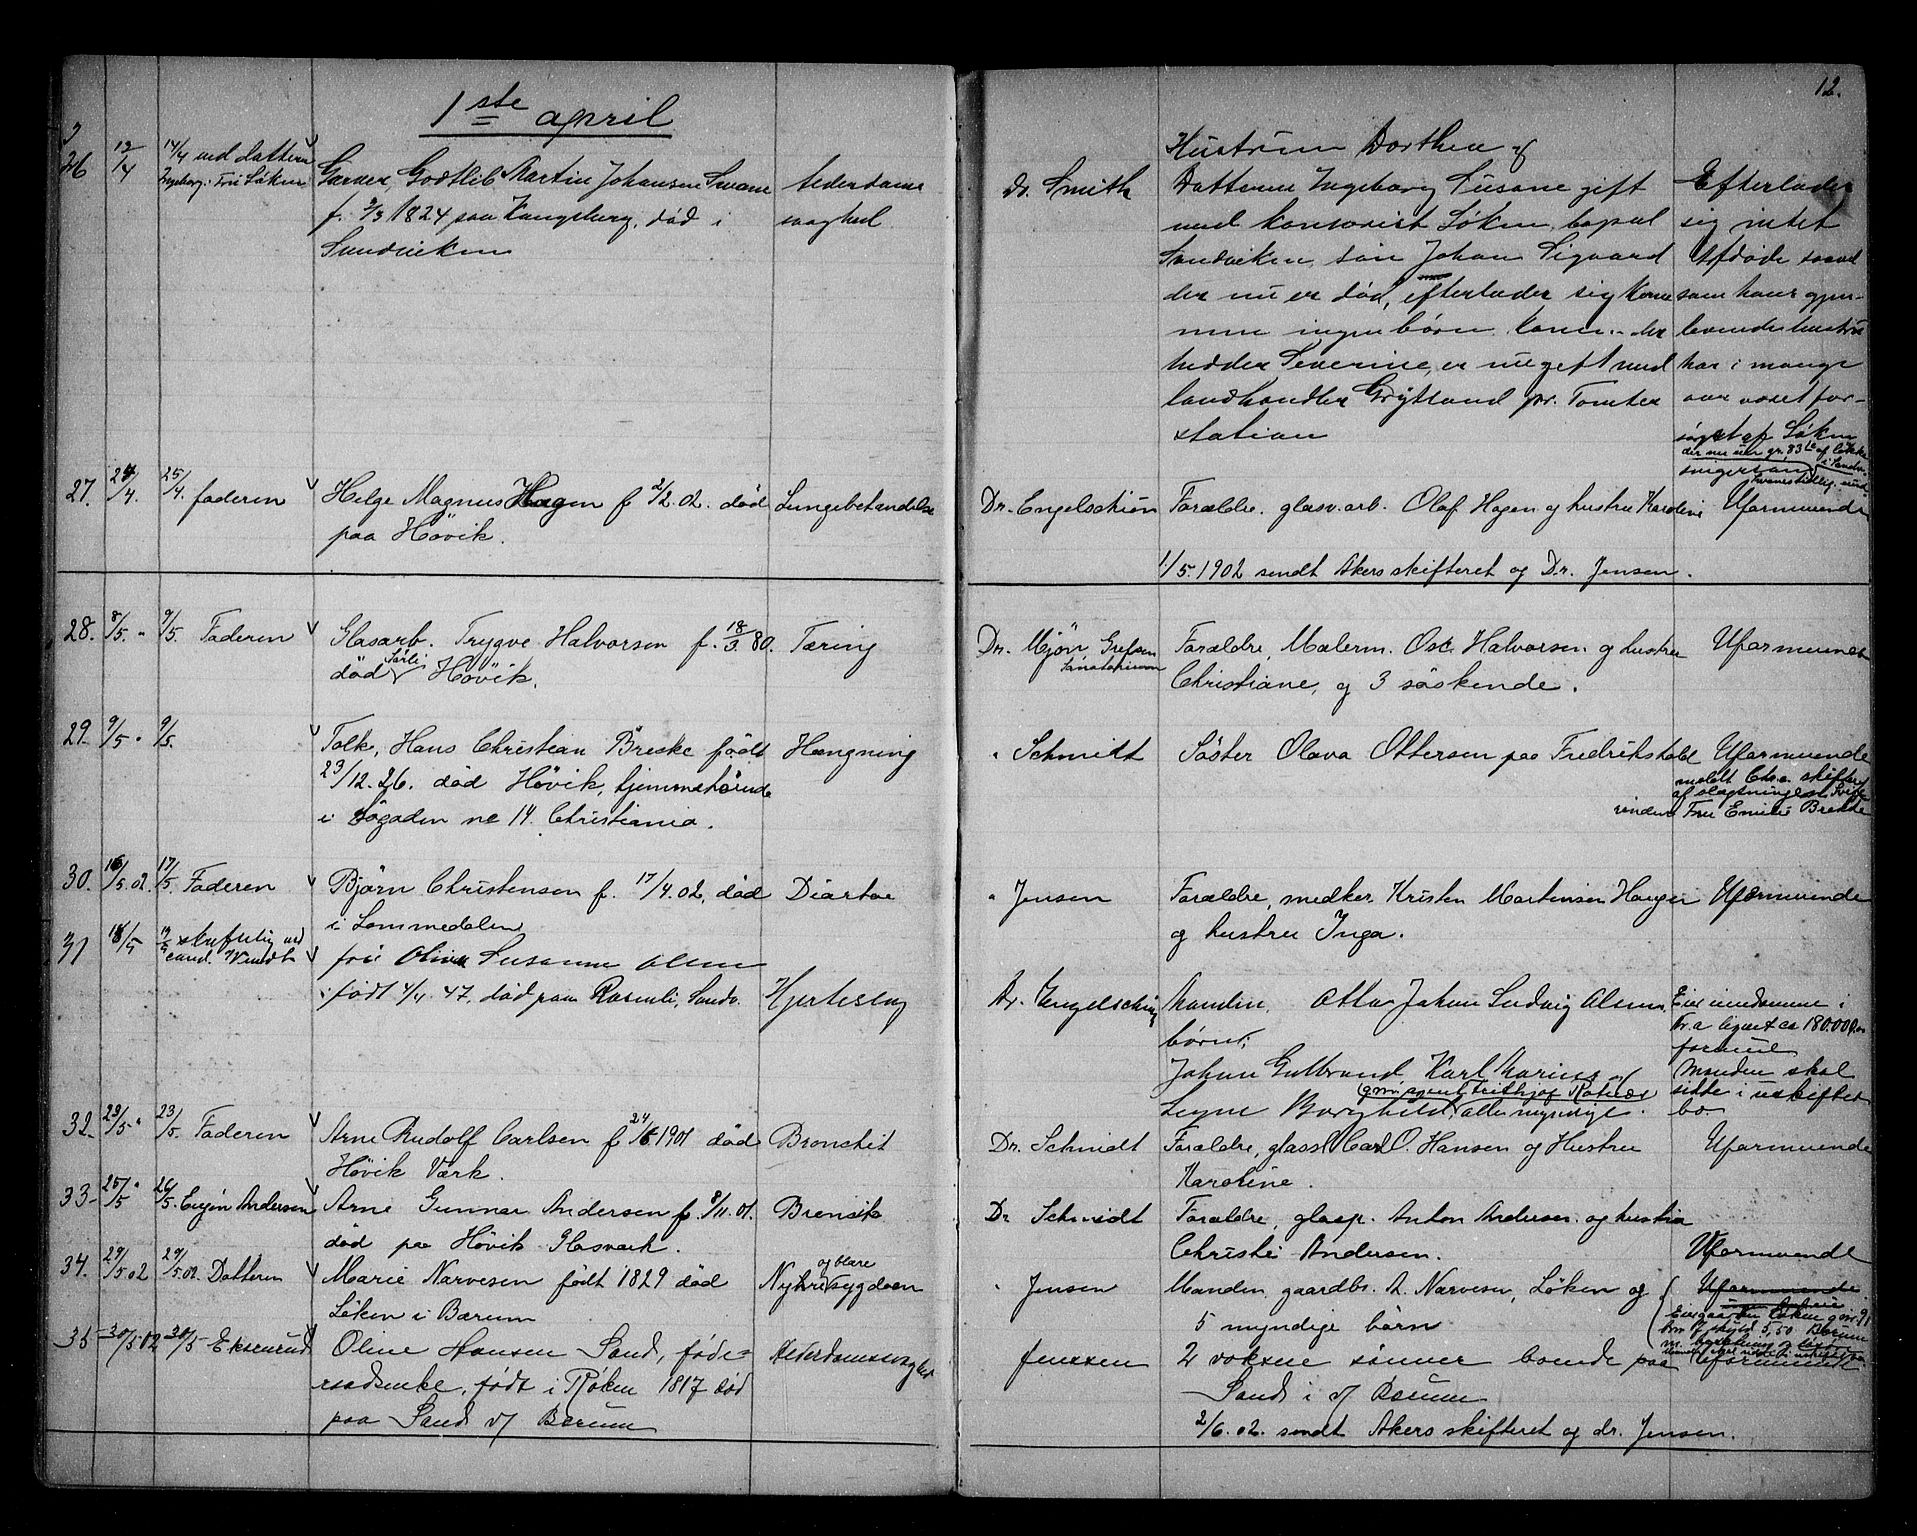 12.
1ste april
26 12/4 14/4 ved datteren
Ingeborg, Fru Løken
Garver, Godtlib Martin Johansen Svane
f. 2/3 1824 paa Kongsberg, død i
Sandviken
Alderdoms
svaghed
Dr. Smith
Hustruen Dorthea og
Datteren Ingeborg Susane gift
med kontorist Løken, bopæl
Sandviken, søn Johan Sigvard
der nu er død, efterlader sig kone
men ingen børn. Konen der
hedder Severine, er nu gift med
landhandler Grytland pr. Tomter
station
Efterlader
sig intet
Afdøde saavel
som hans gjen-
levende hustru
har i mange
aar været for-
sørget af Løken
27. 24/4. 25/4. faderen
Helge Magnus Hagen f 2/2. 02. død
paa Høvik.
Lungebetændelse
Dr. Engelschiøn
Forældre. glasv. arb. Olaf Hagen og hustru Karoline
Uformuende
1/5. 1902 sendt Akers skifteret og Dr. Jensen.
28. 8/5. " 9/5. Faderen
Glasarb. Trygve Halvorsen f. 18/3. 80.
død Høvik.
Tæring
Dr. Mjøn Grefsen
Sanatorium
Forældre, Malerm. Osc. Halvorsen og hustru
Christiane, og 3 søskende.
Uformuende
29. 9/5 " 9/5.
Tolk, Hans Christian Breske født
23/12. 26. død Høvik, hjemmehørende
i Søgaden no 14. Christiania.
Hængning
" Schmidt
Søster Olava Ottersen paa Fredrikshald
Uformuende
meldt Chr.a skifteret
af slægtningen Svige
rinden Fru Emilie Brekke
30. 16/5. 02. 17/5 Faderen
Bjørn Christensen f. 17/4. 02, død
i Lommedalen
Diarhoe
" Jensen
Forældre, snedker Kristen Martinsen Hauger
og hustru Inga.
Uformuende
31 18/5 19/5 skriftlig ved
cand. Wendt
fru Oliva Susanne Olsen
født 4/4. 47. død paa Rosenli, Sandv.
Hjerteslag
Dr. Engelschiøn
Manden, Otto Johan Ludvig Olsen.
børn:
Johan Gulbrand Karl Marius og
Signe Borghild, alle myndige.
Eier eiendomme i
Kr.a lignet ca 180.000 kr
formue
Manden skal
sidde i uskiftet
bo
32. 23/5 " 23/5. Faderen
Arne Rudolf Carlsen f 24/6 1901 død
Høvik Værk.
Bronchit
Dr. Schmidt
Forældre, glassl Carl O. Hansen og Hustru
Karoline.
Uformuende
33- 25/5 " 26/5. Eugen Andersen
Arne Gunnar Andersen f. 8/11. 01.
død paa Høvik Glasværk.
Dr Schmidt
Forældre, glasp. Anton Andersen og hustru
Christi Andersen.
Uformuende
34. 29/5. 02 29/5. 02. Datteren
Marie Narvesen født 1829 død
Løken i Bærum
Nyre og blære sygdom
" Jensen
Manden gaardbr. A. Narvesen, Løken og
5 myndige børn
Uformuende
35 30/5 02 30/5 Ekserud
Oline Hansen Sand, føde-
raadsenke, født i Røken 1817 død
paa Sand v/ Bærum
Alderdomssvaghed
Jenssen
2 voksne sønner boende paa
Sand i v/ Bærum
uformuende
2/6. 02. sendt Akers skifteret og dr. Jensen.